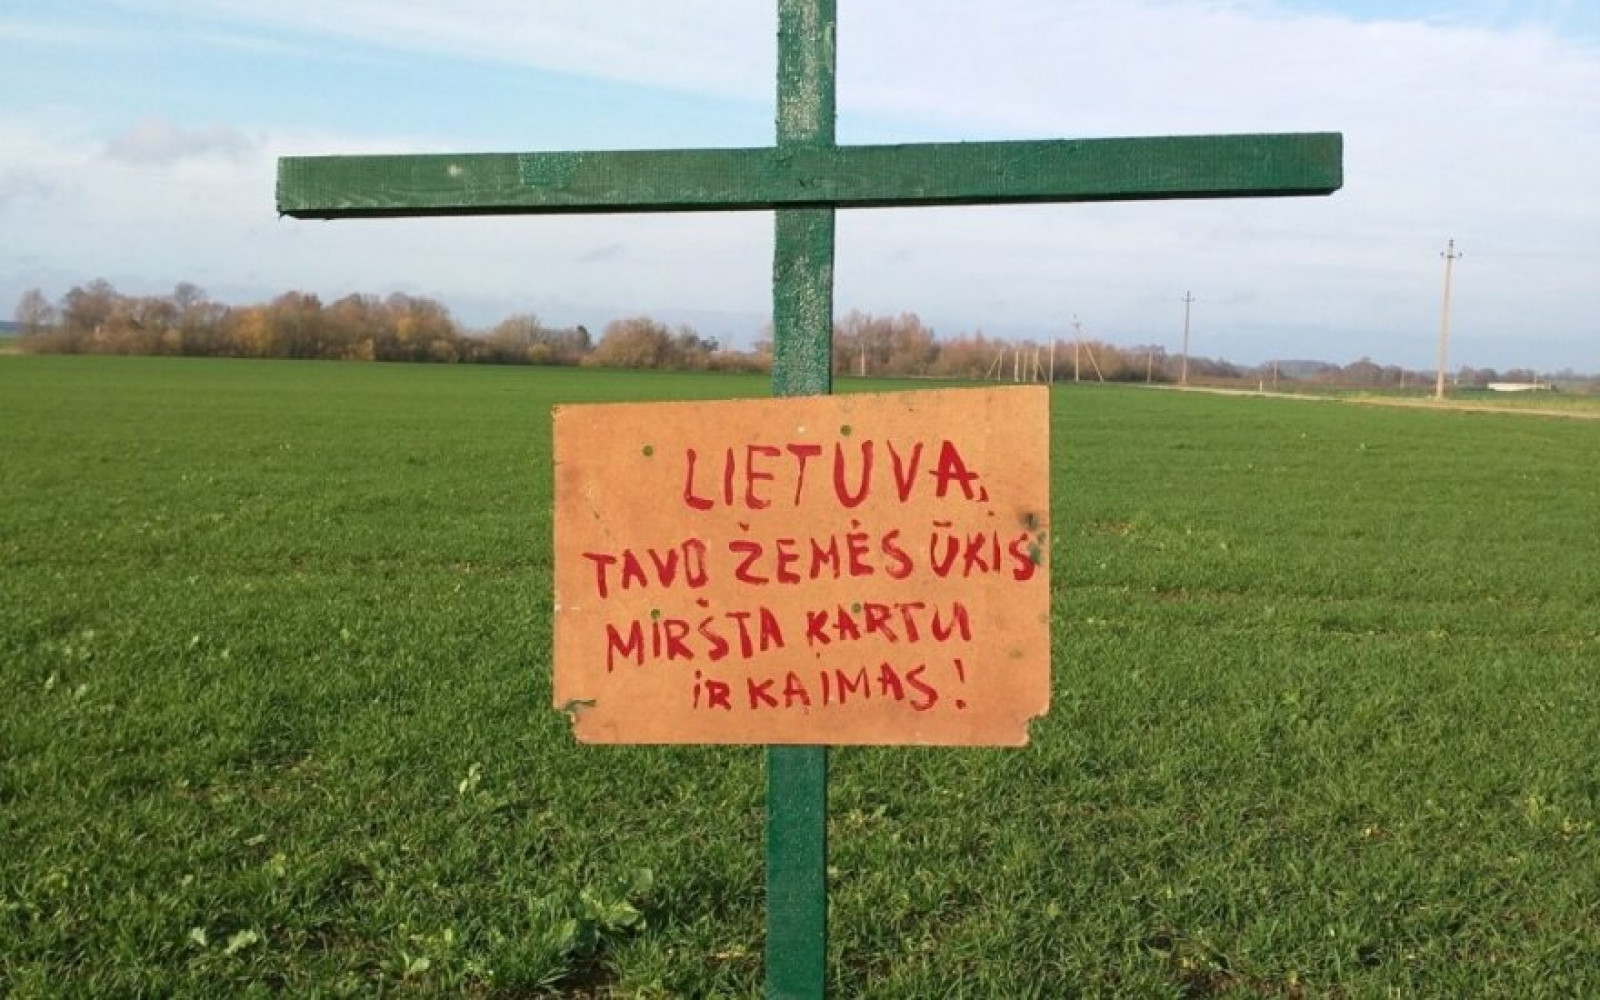 LIETUVA,
TAVO ŽEMĖS ŪKIS
MIRŠTA KARTU
IR KAIMAS!